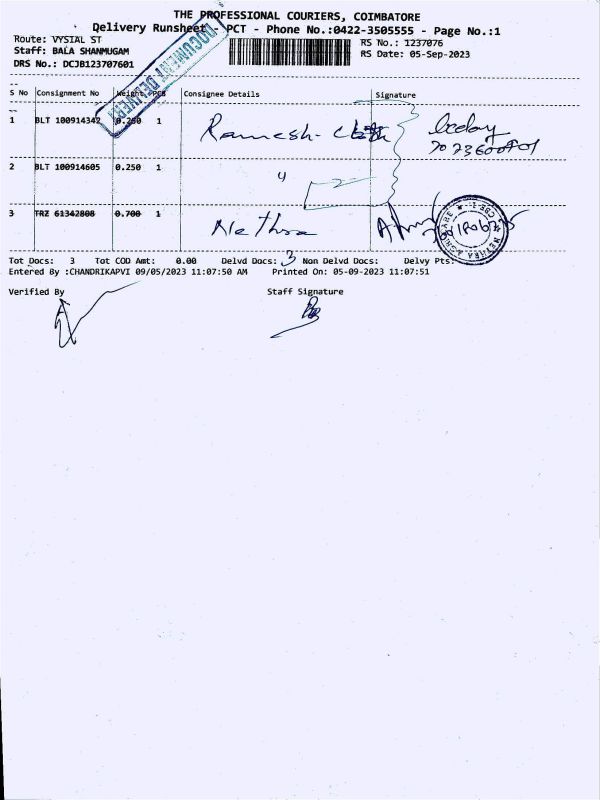 THE PROFESSIONAL COURIERS, COIMBATORE
Delivery Runsheet - PCT - Phone No.:0422-3505555 - Page No.:1
Route: VYSIAL ST
RS No.: 1237076
Staff: BALA SHANMUGAM
RS Date: 05-Sep-2023
DRS No.: DCJB123707601
DOCUMENT DELIVERY
S No Consignment No Weight PCS Consignee Details Signature
1 BLT 100914342 0.250 1 Ramesh-
2 BLT 100914605 0.250 1 "
3 TRZ 61342808 0.700 1 Nethra
NETHRA AGENCY
Tot Docs: 3 Tot COD Amt: 0.00 Delvd Docs: 3 Non Delvd Docs: Delvy Pts:
Entered By :CHANDRIKAPVI 09/05/2023 11:07:50 AM Printed On: 05-09-2023 11:07:51
Verified By Staff Signature